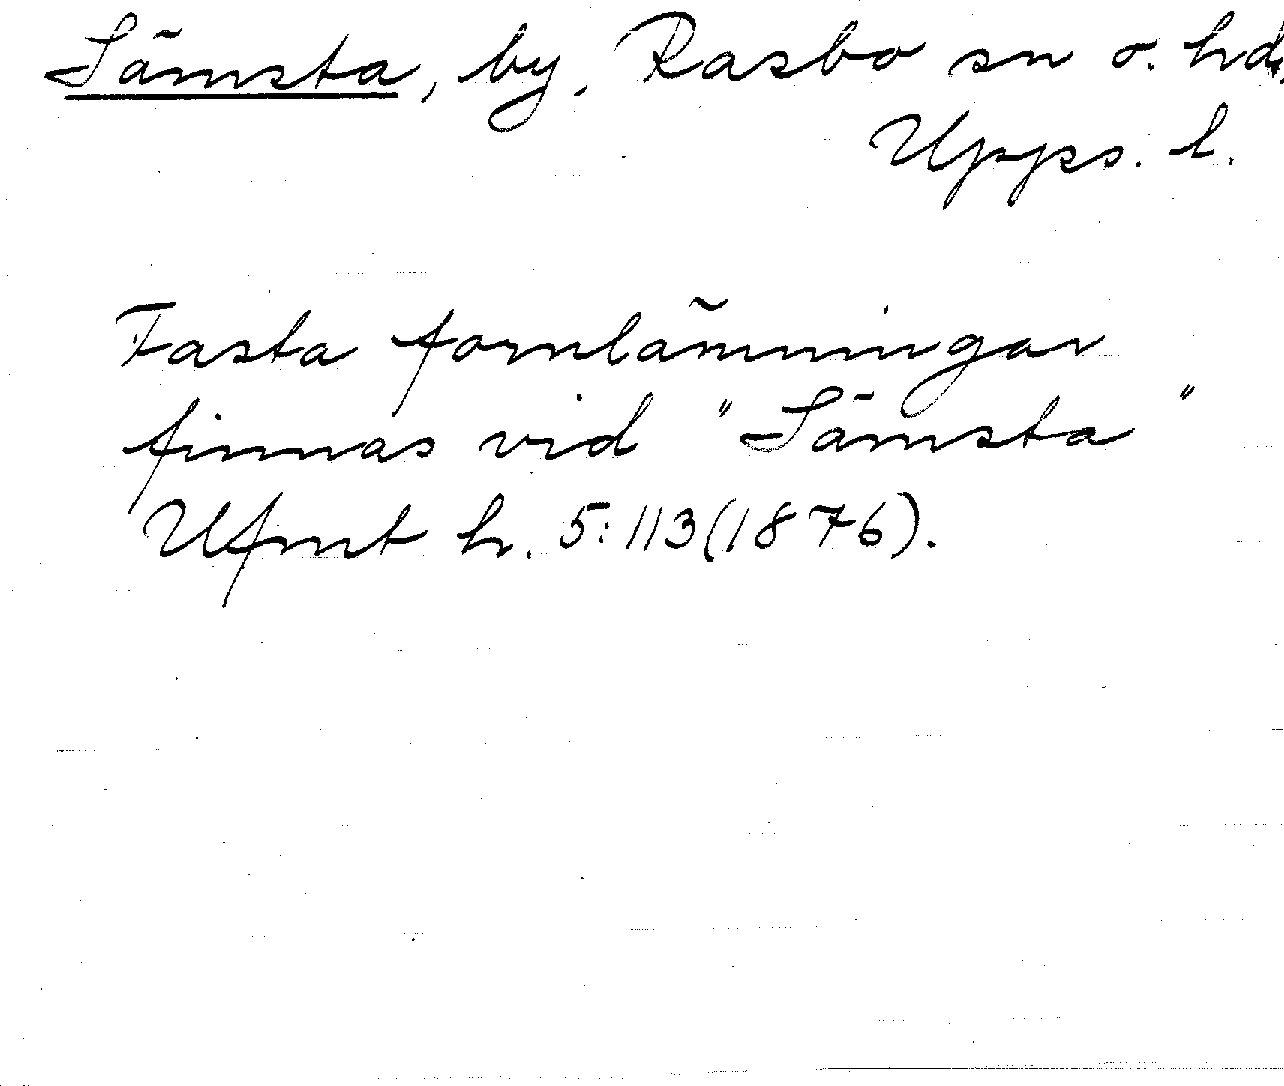 Sämsta, by, Rasbo sn o. hd.
Upps. l.
Fasta fornlämningar
finnas vid "Sämsta"
Ufmt h. 5:113(1876).